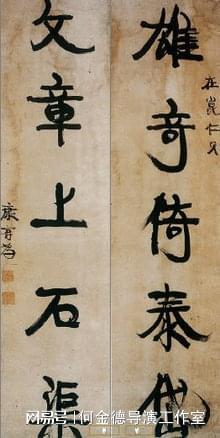 雄竒倚泰岱
在崑仁兄
文章上石渠
康有為
搜狐号@何金德导演工作室